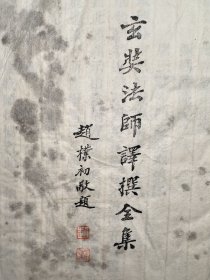 玄奘法師譯撰全集
趙樸初敬題